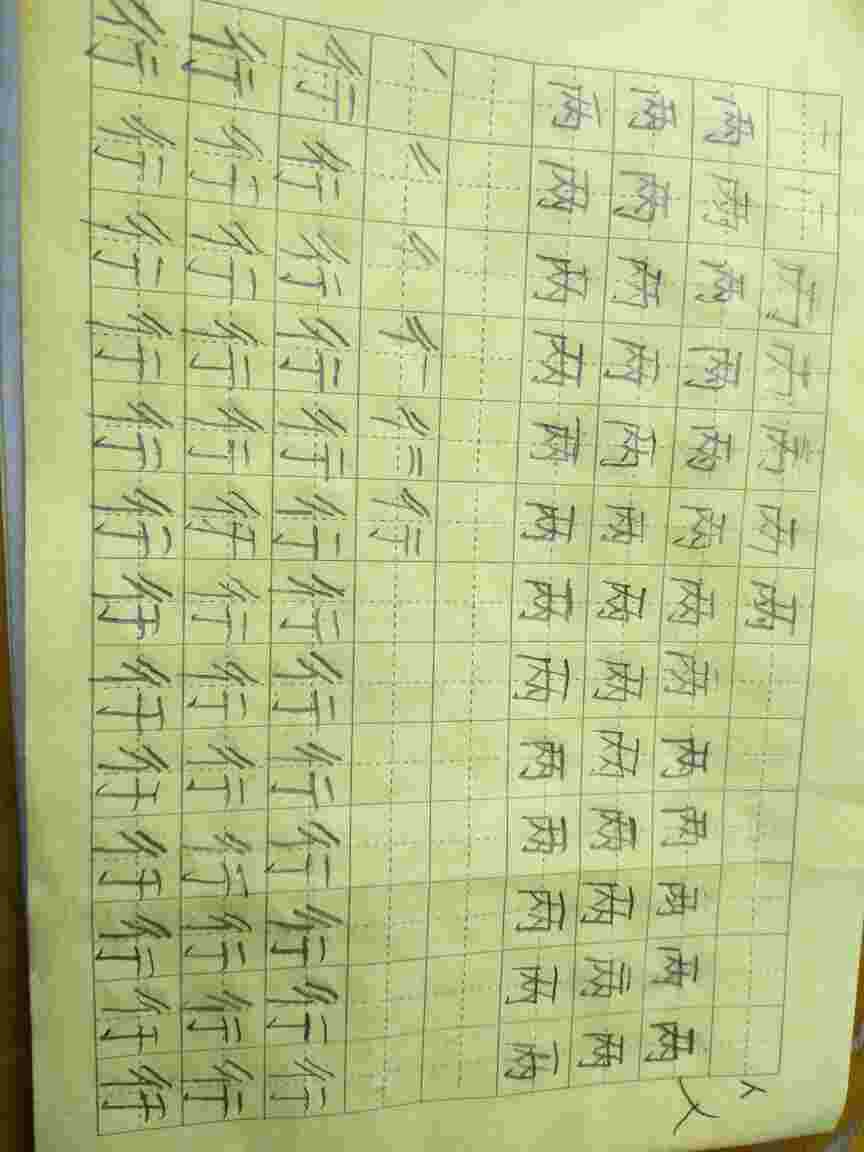 两
两两两两两两两两两两两两两 人
两两两两两两两两两两两两两
两两两两两两两两两两两两两
行
行行行行行行行行行行行行行
行行行行行行行行行行行行行
行行行行行行行行行行行行行